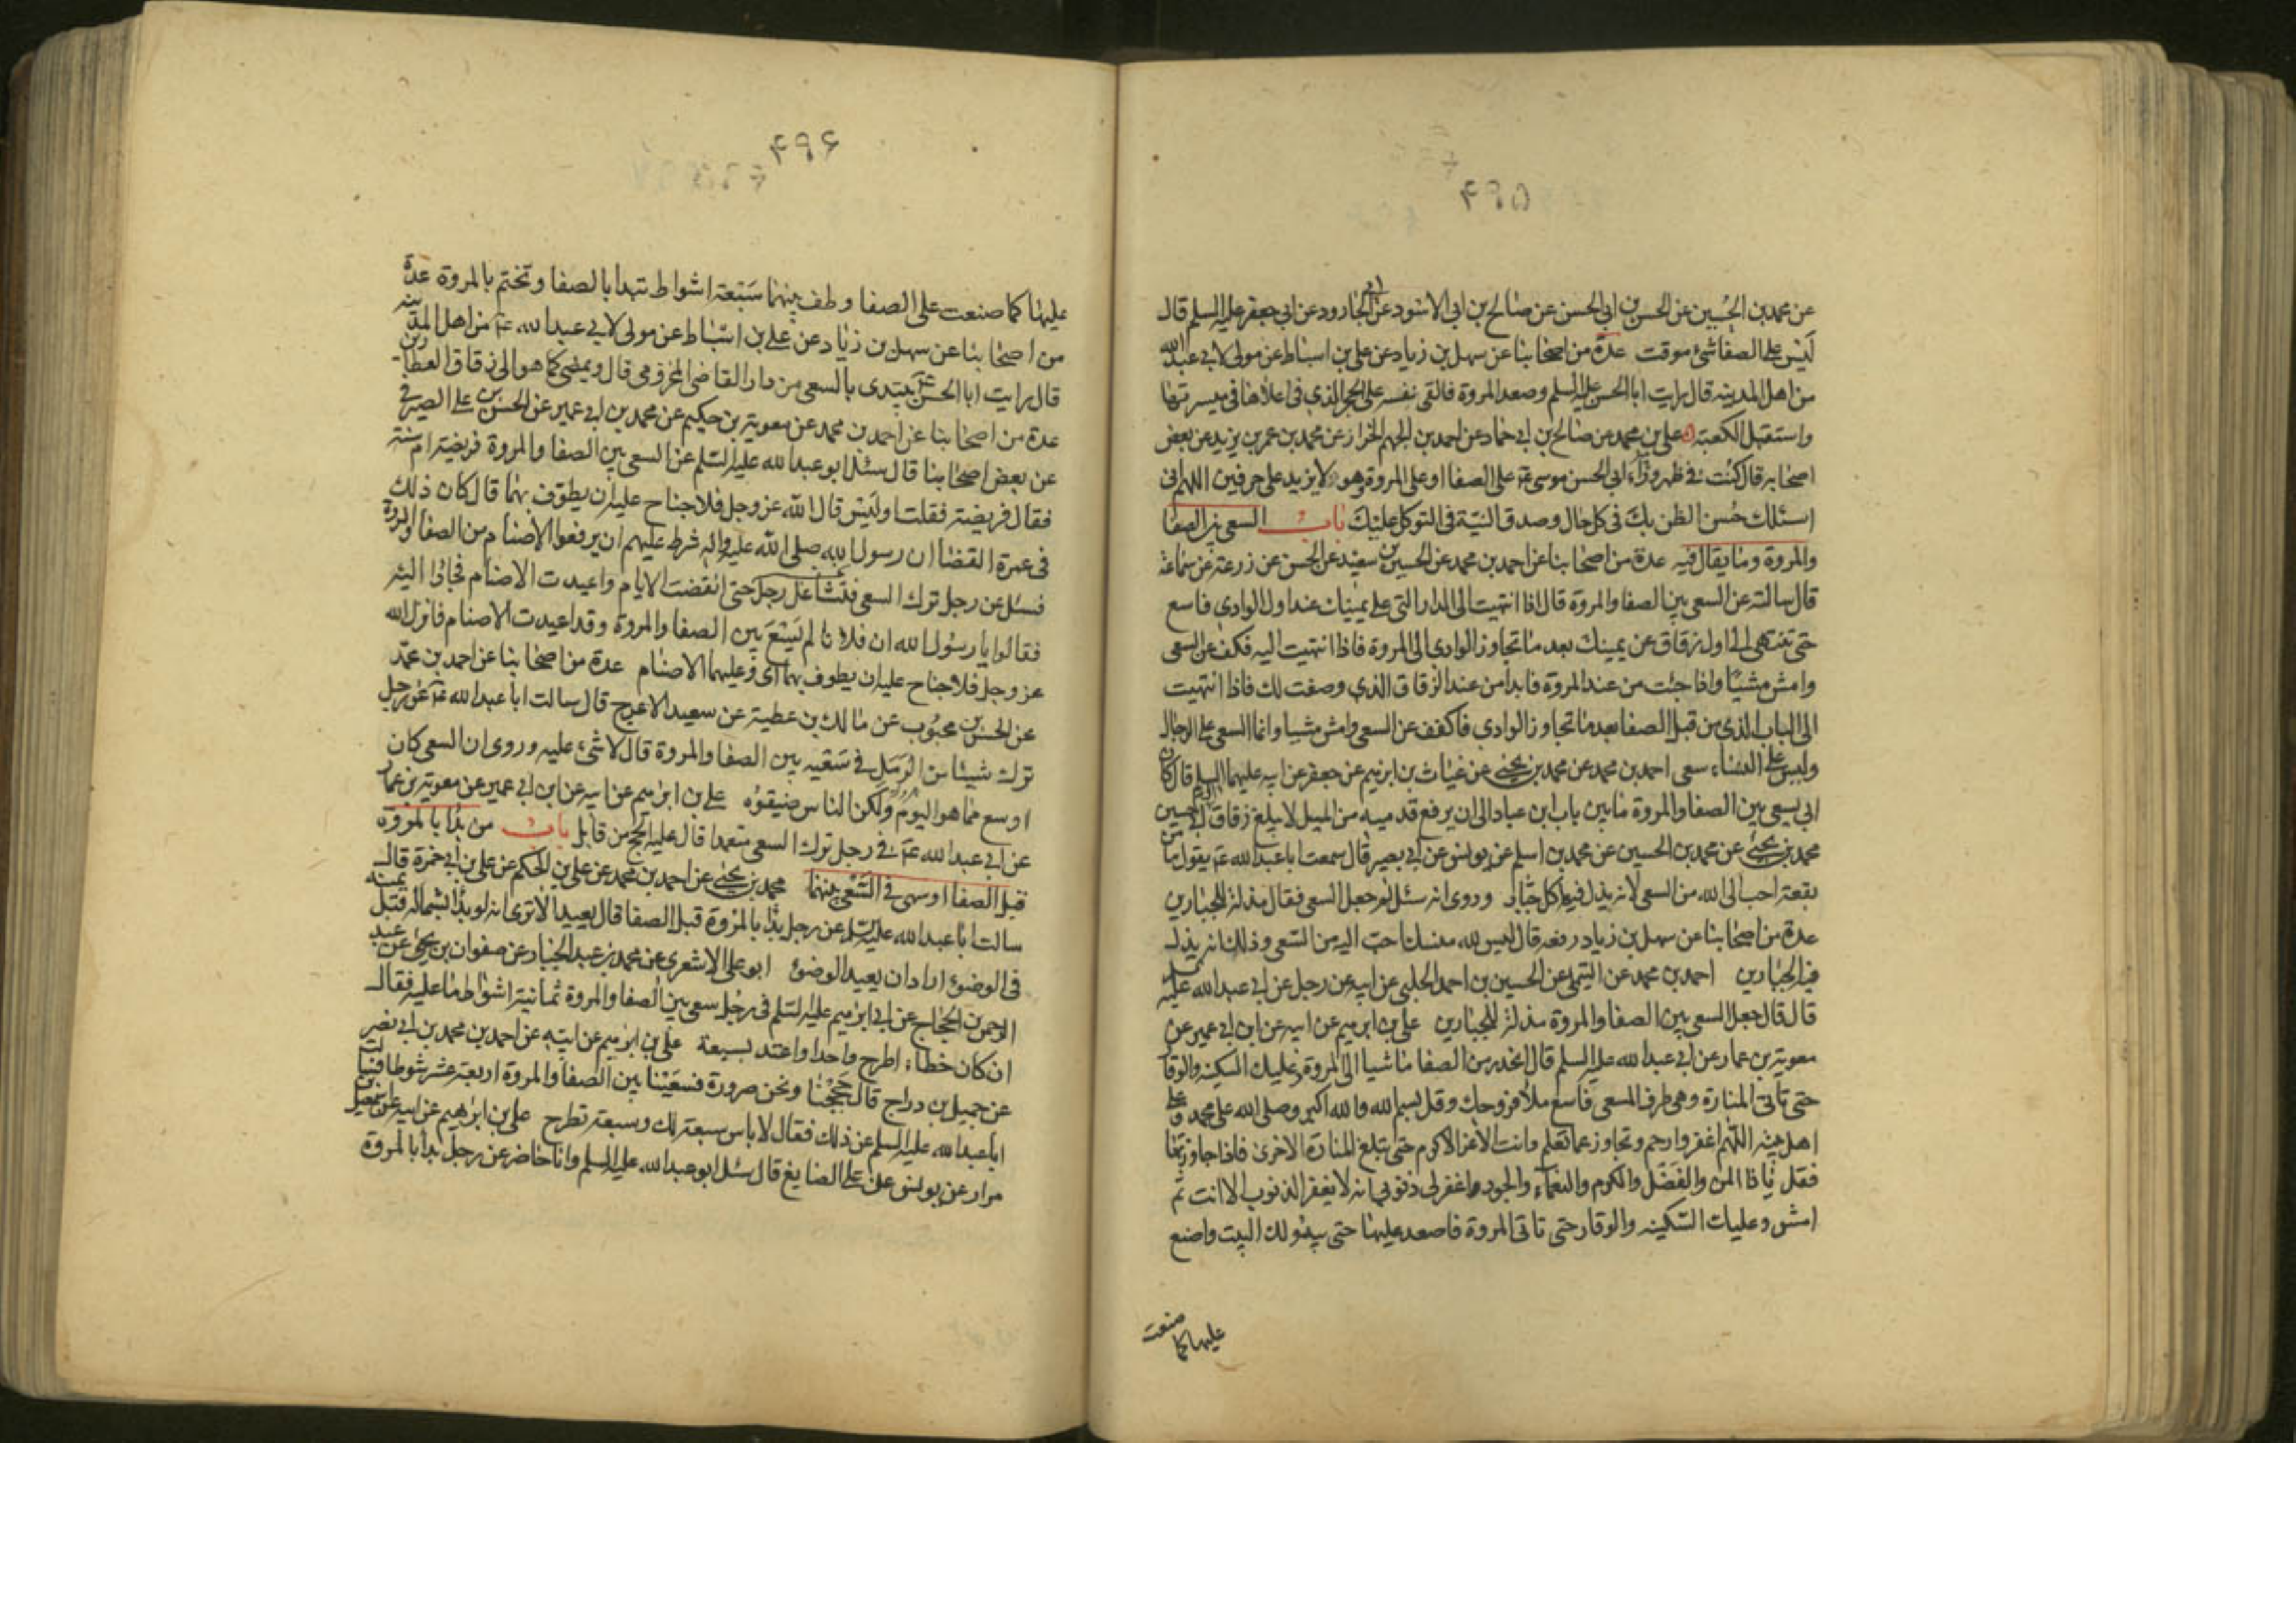 ۴۹۵
عن محمد بن الحسين عن الحسن بن ابى الحسن عن صالح بن ابى الاسود عن ابى الجارود عن ابى جعفر عليه السلم قال
ليس على الصفا شئ موقت عدة من اصحابنا عن سهل بن زياد عن على بن اسباط عن مولى لابى عبد الله
من اهل المدينه قال رايت ابا الحسن عليه السلم وصعد المروة فالقى نفسه على الحجر الذى فى اعلاها فى ميسرتها
واستقبل الكعبة على بن محمد عن صالح بن ابى حماد عن احمد بن الجهم الخزاز عن محمد بن عمر بن يزيد عن بعض
اصحابه قال كنت فى ظهر وراء ابى الحسن موسى ع على الصفا او على المروة وهو لا يزيد على حرفين اللهم انى
اسئلك حسن الظن بك فى كل حال وصدق النية فى التوكل عليك باب السعى بين الصفا
والمروة وما يقال فيه عدة من اصحابنا عن احمد بن محمد عن الحسين بن سعيد عن الحسن عن زرعة عن سماعة
قال سالته عن السعى بين الصفا والمروة قال اذا انتهيت الى الدار التى على يمينك عند اول الوادى فاسع
حتى تنتهى الى اول زقاق عن يمينك بعد ما تجاوز الوادى الى المروة فاذا انتهيت اليه فكف عن السعى
وامش مشيا واذا جئت من عند المروة فابدا من عند الزقاق الذى وصفت لك فاذا انتهيت
الى الباب الذى من قبل الصفا بعد ما تجاوز الوادى فاكفف عن السعى وامش مشيا وانما السعى على الرجال
وليس على النساء سعى احمد بن محمد عن محمد بن يحيى عن غياث بن ابرهيم عن جعفر عن ابيه عليهما السلم قال كان
ابى يسعى بين الصفا والمروة ما بين باب ابن عباد الى ان يرفع قدميه من الميل لا يبلغ زقاق ال ابى حسين
محمد بن يحيى عن محمد بن الحسين عن محمد بن اسلم عن يونس عن ابى بصير قال سمعت ابا عبد الله ع يقول ما من
بقعة احب الى الله من السعى لانه يذل فيها كل جبار وروى انه سئل لم جعل السعى فقال مذلة للجبارين
عدة من اصحابنا عن سهل بن زياد رفعه قال ليس لله منسك احب اليه من السعى وذلك انه يذل
فيه الجبارين احمد بن محمد عن التيمى عن الحسين بن احمد الحلبى عن ابيه عن رجل عن ابى عبد الله عليه السلم
قال قال جعل السعى بين الصفا والمروة مذلة للجبارين على بن ابرهيم عن ابيه عن ابن ابى عمير عن
معوية بن عمار عن ابى عبد الله عليه السلم قال انحدر من الصفا ماشيا الى المروة وعليك السكينه والوقار
حتى تاتى المنارة وهى طرف المسعى فاسع ملأ فروجك وقل بسم الله والله اكبر وصلى الله على محمد وعلى
اهل بيته اللهم اغفر وارحم وتجاوز عما تعلم وانت الاعز الاكرم حتى تبلغ المنارة الاخرى فاذا جاوزتها
فقل يا ذا المن والفضل والكرم والنعماء والجود اغفر لى ذنوبى انه لا يغفر الذنوب الا انت ثم
امش وعليك السكينه والوقار حتى تاتى المروة فاصعد عليها حتى يبدو لك البيت واصنع
عليها كما صنعت
۴۹۶
عليها كما صنعت على الصفا وطف بينهما سبعة اشواط تبدا بالصفا وتختم بالمروة عدة
من اصحابنا عن سهل بن زياد عن على بن اسباط عن مولى لابى عبد الله ع من اهل المدينه
قال رايت ابا الحسن ع يبتدى بالسعى من دار القاضى المخزومى قال ويمضى كما هو الى زقاق العطارين
عدة من اصحابنا عن احمد بن محمد عن معوية بن حكيم عن محمد بن ابى عمير عن الحسن بن على الصيرفى
عن بعض اصحابنا قال سئل ابو عبد الله عليه السلم عن السعى بين الصفا والمروة فريضة ام سنة
فقال فريضة فقلت اوليس قال الله عز وجل فلا جناح عليه ان يطوف بهما قال كان ذلك
فى عمرة القضا ان رسول الله صلى الله عليه واله شرط عليهم ان يرفعوا الاصنام من الصفا والمروة
فسئل عن رجل ترك السعى فتشاغل رجل حتى انقضت الايام واعيدت الاصنام فجاؤا اليه
فقالوا يا رسول الله ان فلانا لم يسع بين الصفا والمروة وقد اعيدت الاصنام فانزل الله
عز وجل فلا جناح عليه ان يطوف بهما اى وعليهما الاصنام عدة من اصحابنا عن احمد بن محمد
عن الحسن بن محبوب عن مالك بن عطية عن سعيد الاعرج قال سالت ابا عبد الله ع عن رجل
ترك شيئا من الرمل فى سعيه بين الصفا والمروة قال لا شئ عليه وروى ان السعى كان
اوسع مما هو اليوم ولكن الناس ضيقوه على بن ابرهيم عن ابيه عن ابن ابى عمير عن معوية بن عمار
عن ابى عبد الله ع فى رجل ترك السعى متعمدا قال عليه الحج من قابل باب من بدا بالمروة
قبل الصفا او سهى فى السعى بينهما محمد بن يحيى عن احمد بن محمد عن على بن الحكم عن على بن ابى حمزة قال
سالت ابا عبد الله عليه السلم عن رجل بدا بالمروة قبل الصفا قال يعيد الا ترى انه لو بدا بشماله قبل يمينه
فى الوضوء اراد ان يعيد الوضوء ابو على الاشعرى عن محمد بن عبد الجبار عن صفوان بن يحيى عن عبد
الرحمن بن الحجاج عن ابى ابرهيم عليه السلم فى رجل سعى بين الصفا والمروة ثمانية اشواط ما عليه فقال
ان كان خطأ اطرح واحدا واعتد بسبعة على بن ابرهيم عن ابيه عن احمد بن محمد بن ابى نصر
عن جميل بن دراج قال حججنا ونحن صرورة فسعينا بين الصفا والمروة اربعة عشر شوطا فسالت
ابا عبد الله عليه السلم عن ذلك فقال لا باس سبعة لك وسبعة تطرح على بن ابرهيم عن ابيه عن اسمعيل بن
مرار عن يونس عن على الصايغ قال سئل ابو عبد الله عليه السلم وانا حاضر عن رجل بدا بالمروة